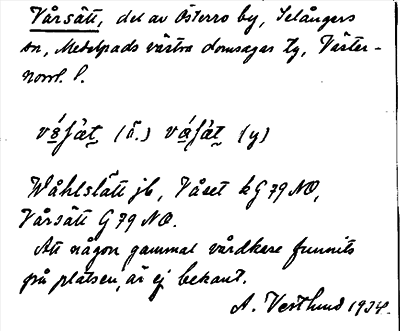 Vårsätt, del av Österro by, Selångers
sn, Medelpads västra domsagas tg, Väster-
norrl. l.
våsät (ä.) våsät (y)
Wåhlslätt jb, Våset kG 79 NO,
Vårsätt G 79 NO.
Att någon gammal vårdkase funnits
på platsen, är ej bekant.
A. Vestlund 1934.